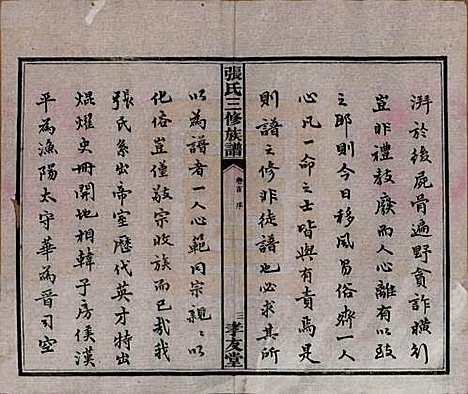 湃於後屍骨遍野貪詐橫行
豈非禮教廢而人心離有以致
之耶則今日移風易俗齊一人
心凡一命之士皆與有責焉是
則譜之修非徒譜也必求其所
張氏三修族譜
卷首 序
三
孝友堂
以為譜者一人心範同宗親親以
化俗豈僅敬宗收族而已哉我
張氏系出帝室歷代英才特出
焜燿史冊開地相韓子房侯漢
平為漁陽太守華為晉司空